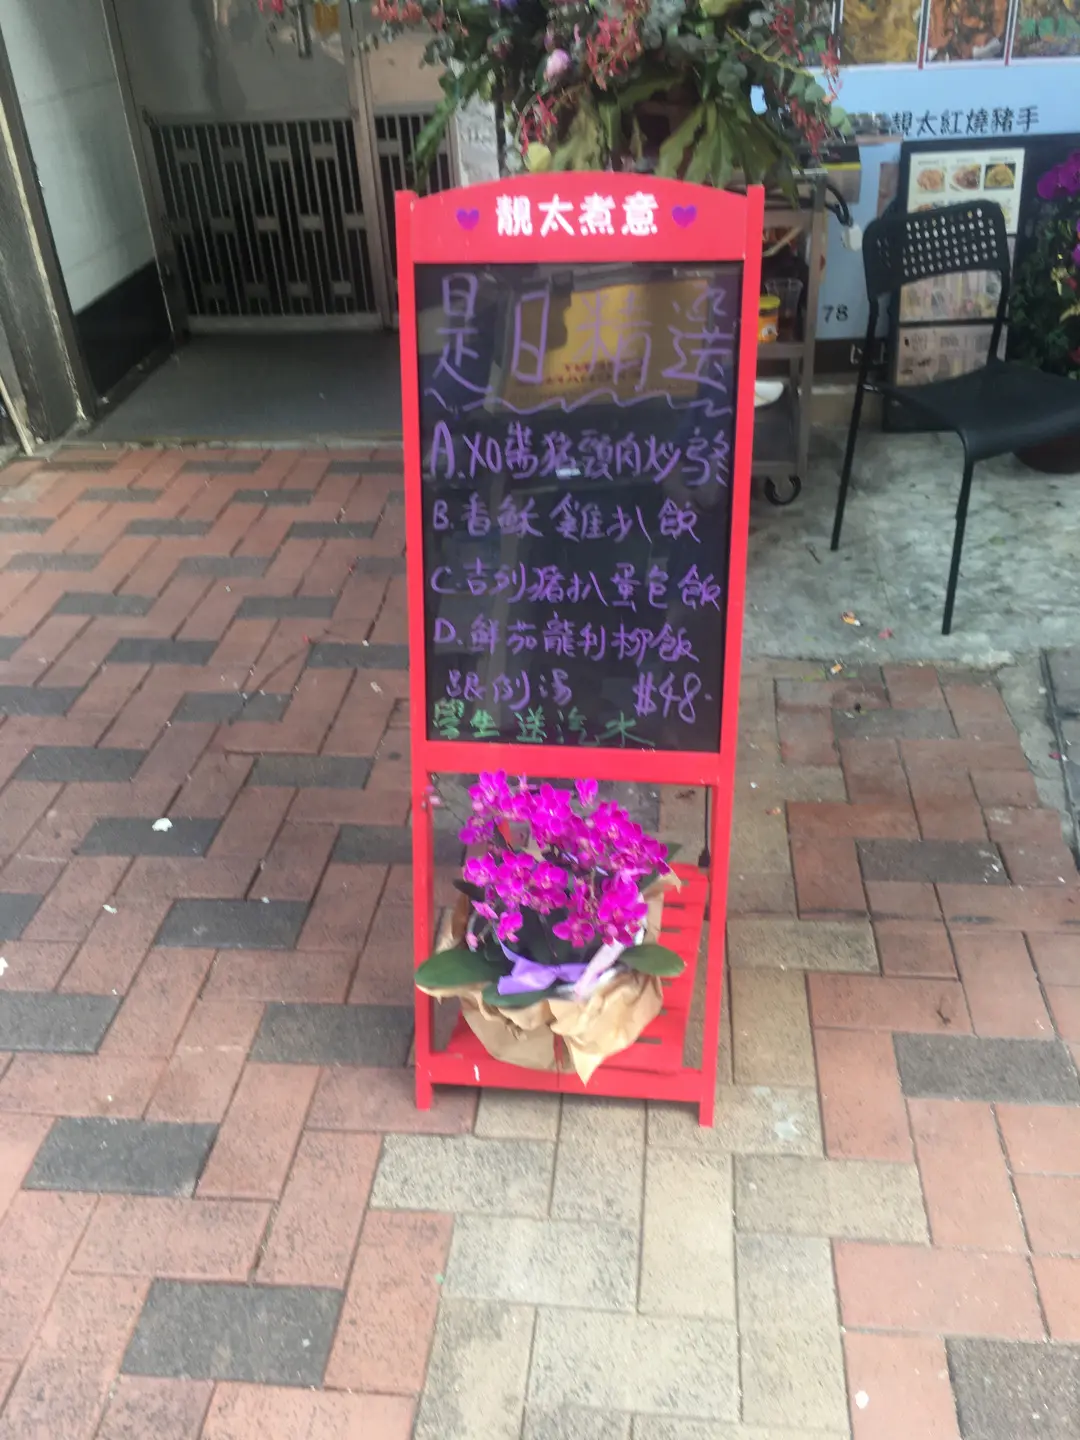 靚太紅燒豬手
靚太煮意
是日精選
A. XO醬豬頸肉炒
B. 香酥雞扒飯
C. 吉列豬扒蛋包飯
D. 鮮茄龍利柳飯
跟例湯 $48.
學生送汽水
78